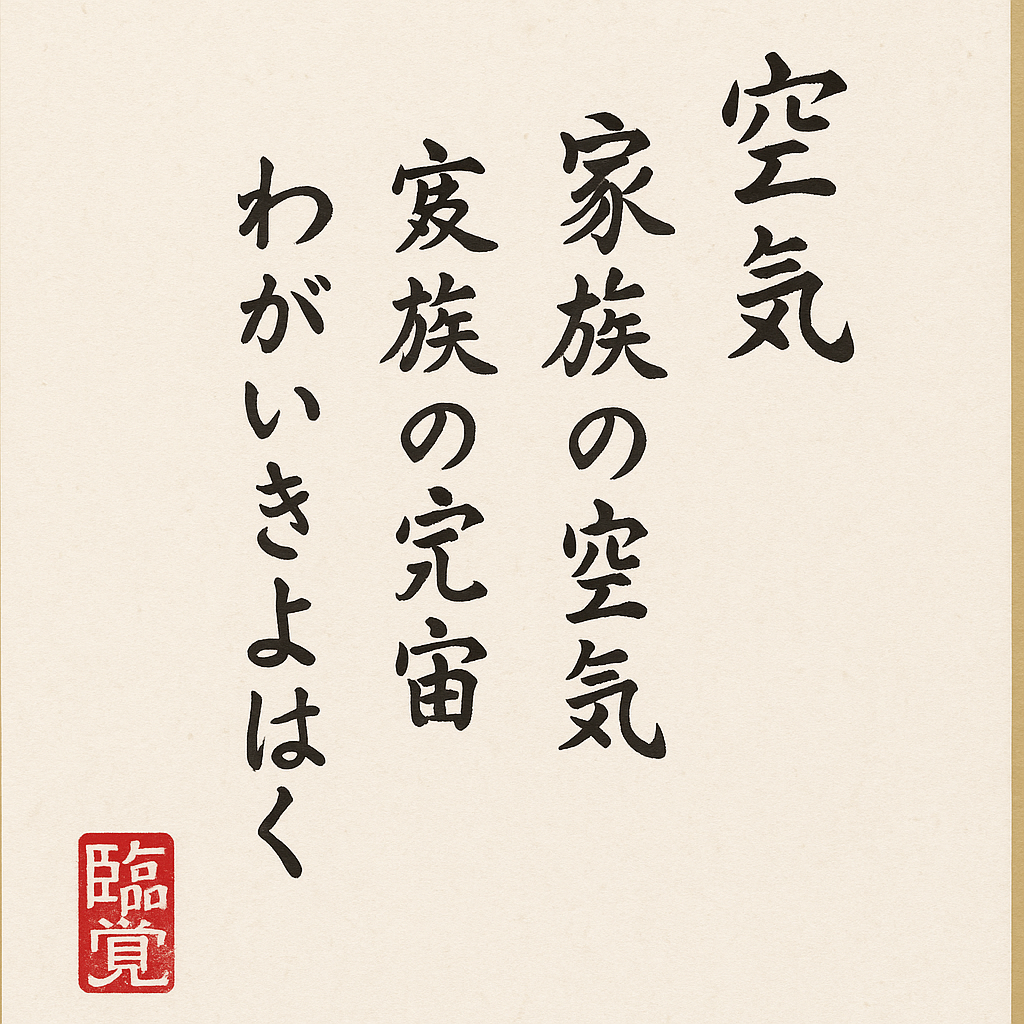 空気
家族の空気
族の宙
わがいきよはく
臨覚